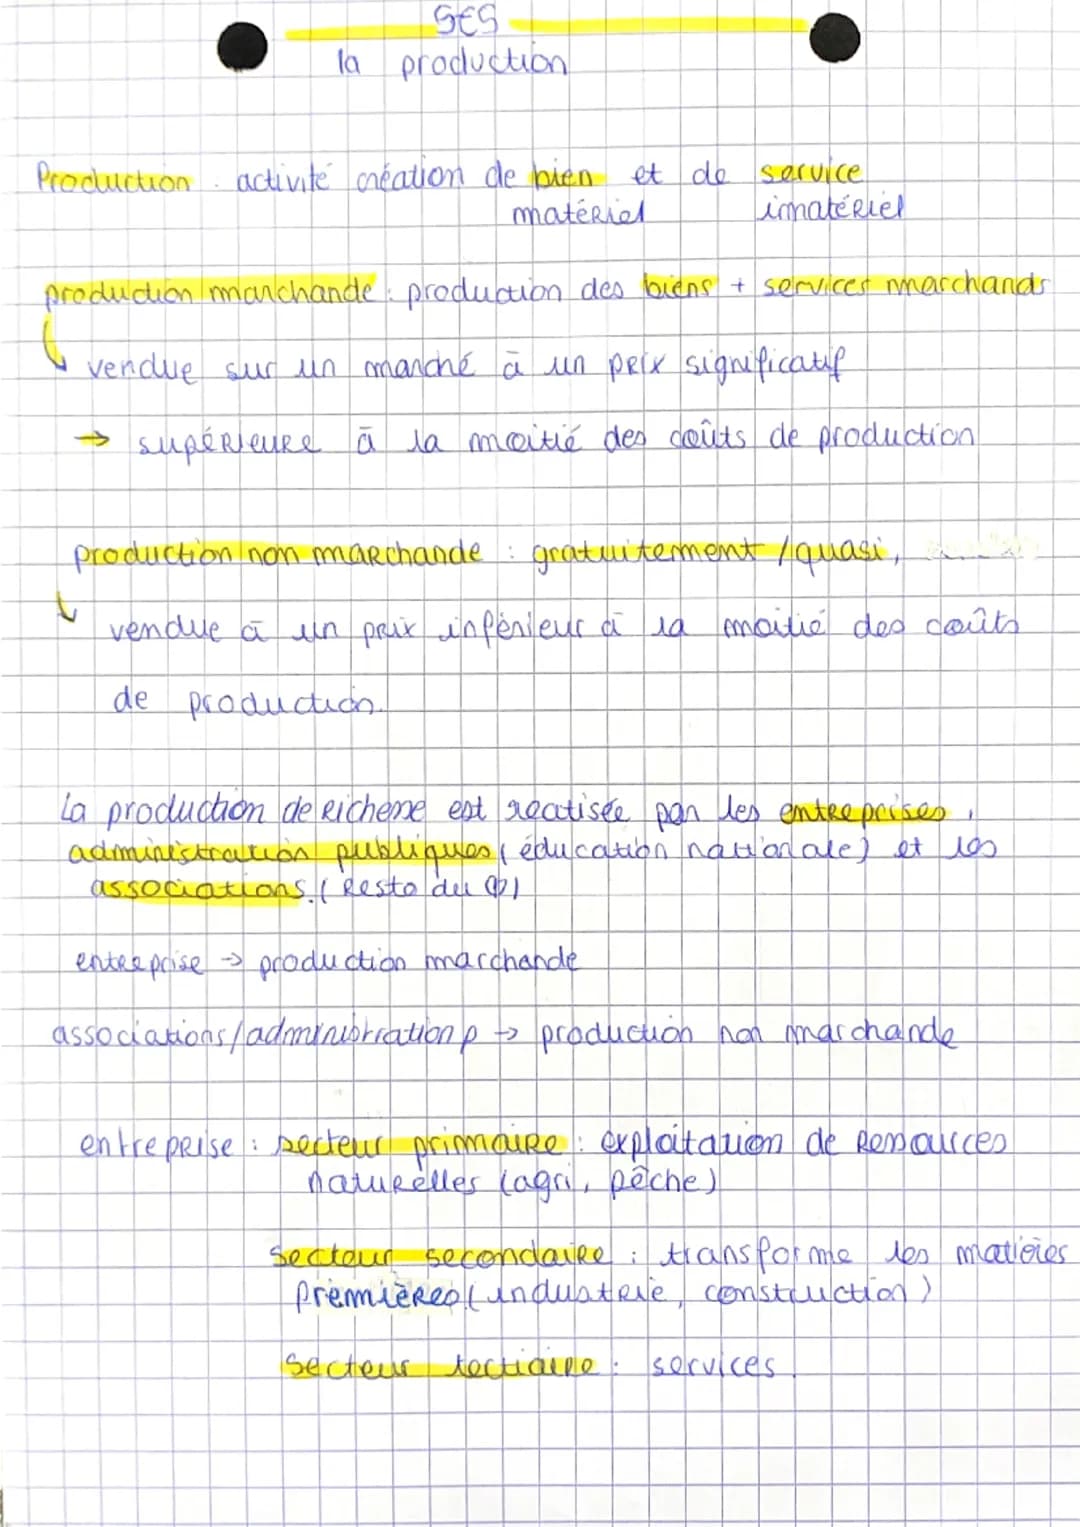 SES
la production
Production : activité création de bien et de service
matériel immatériel
production marchande : production des biens + services marchands
vendue sur un marché à un prix significatif
→ supérieure à la moitié des coûts de production
production non marchande : gratuitement / quasi,
vendue à un prix inférieur à la moitié des coûts
de production.
La production de richesse est réalisée par les entreprises,
administration publiques (éducation nationale) et les
associations. (Resto du
entreprise → production marchande
associations/administration p → production non marchande
entreprise : secteur primaire : exploitation de Ressources
naturelles (agri, pêche)
secteur secondaire : transforme les matières
premières (industrie, construction)
Secteur tertiaire : services.